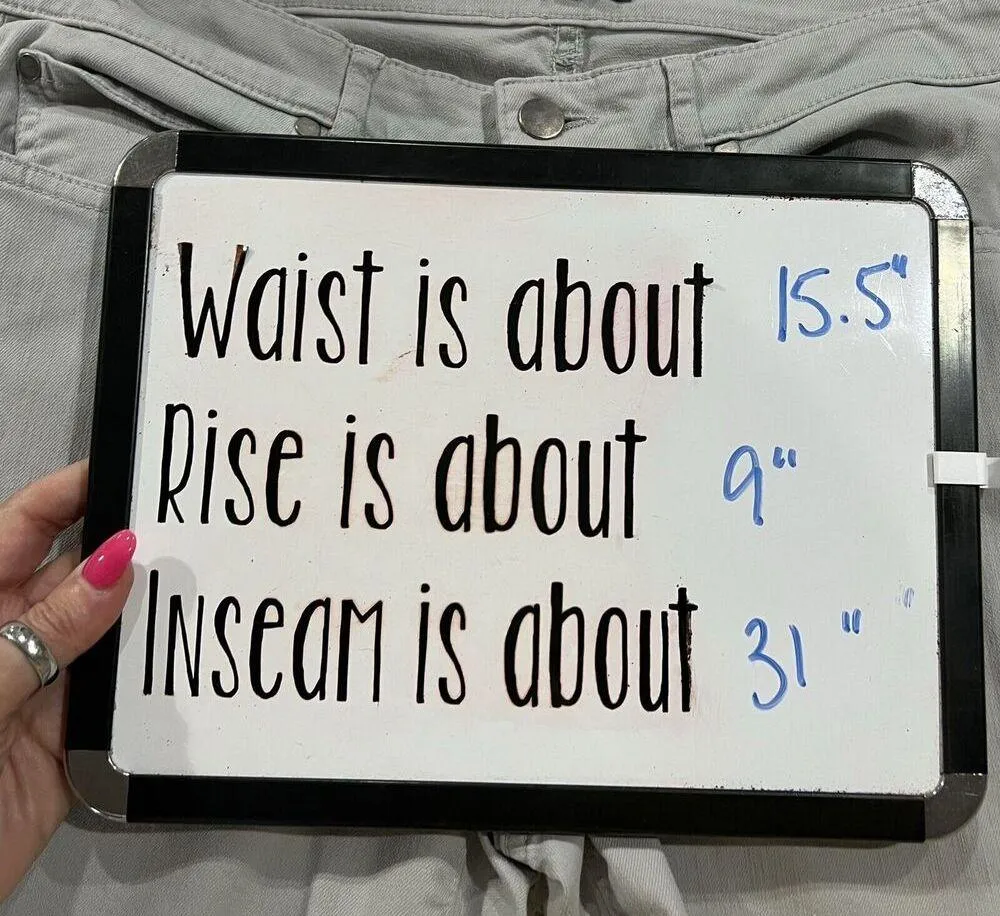 Waist is about 15.5"
Rise is about 9"
Inseam is about 31"